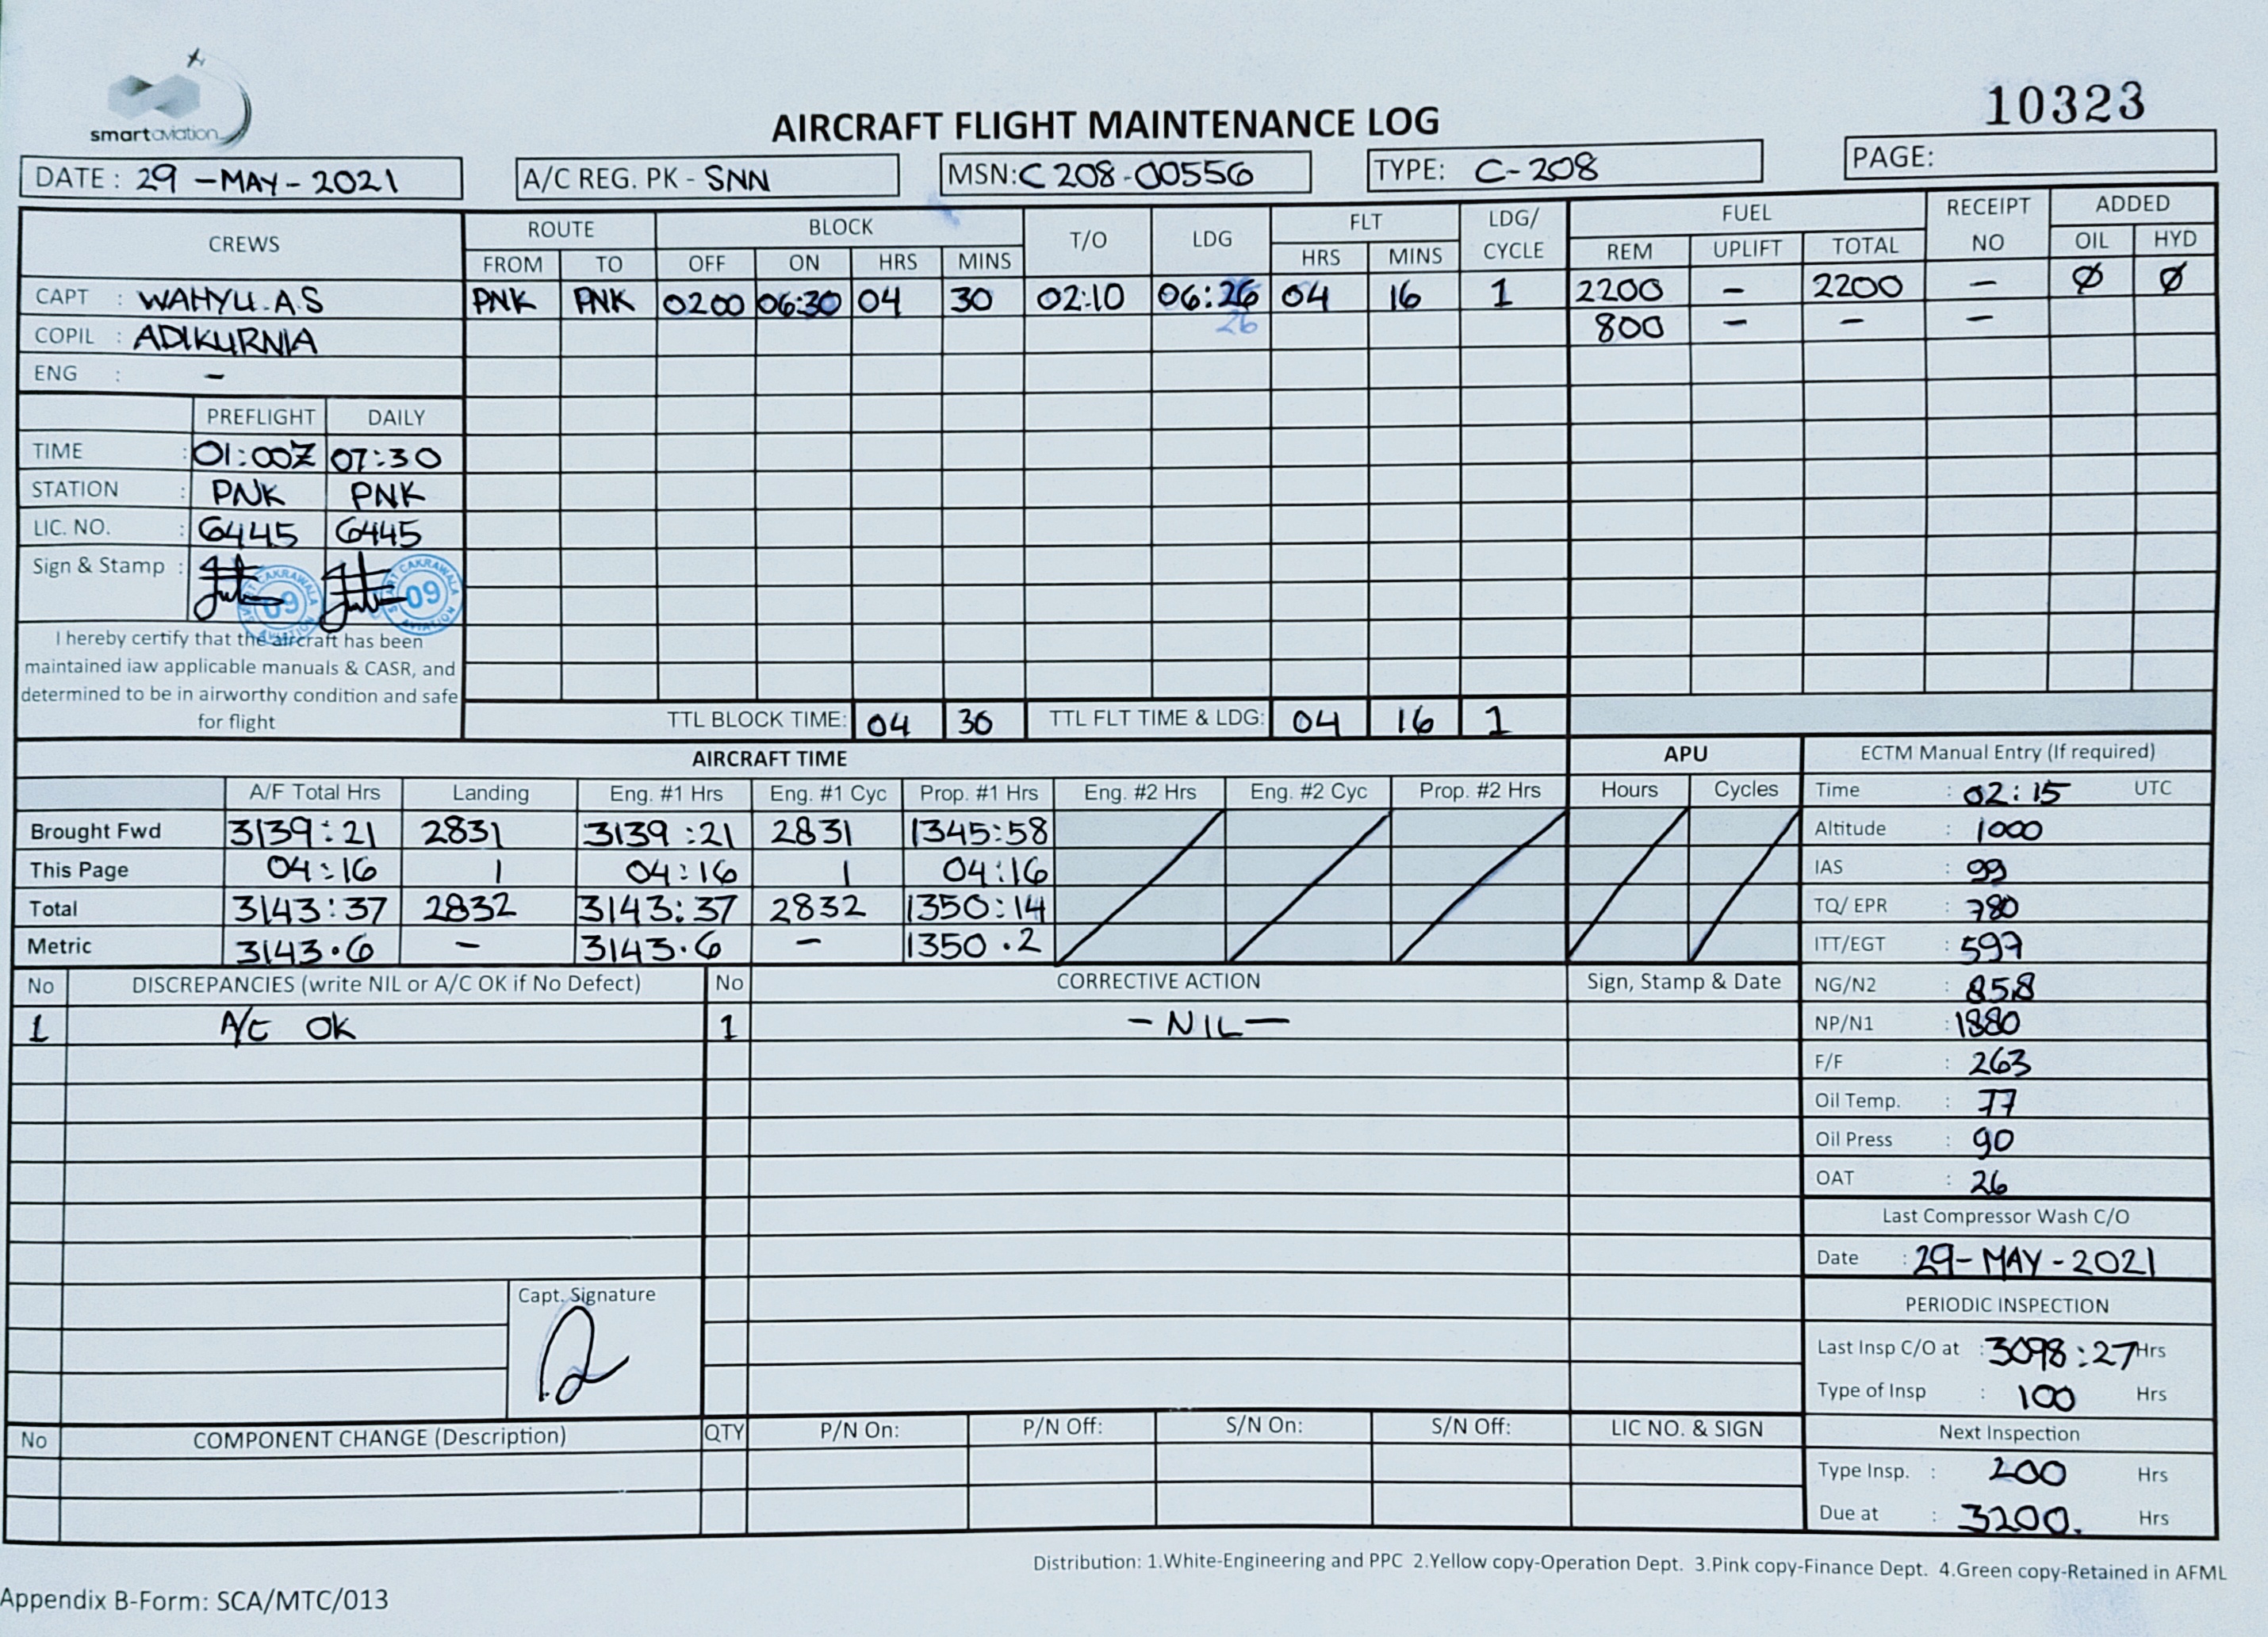 smartaviation
10323
AIRCRAFT FLIGHT MAINTENANCE LOG
DATE : 29 -MAY- 2021
A/C REG. PK - SNN
MSN: C 208-00556
TYPE: C-208
PAGE:
CREWS
ROUTE BLOCK T/O LDG FLT LDG/ CYCLE FUEL RECEIPT NO ADDED
FROM TO OFF ON HRS MINS HRS MINS REM UPLIFT TOTAL OIL HYD
CAPT : WAHYU.A.S PNK PNK 0200 06:30 04 30 02:10 06:26 04 16 1 2200 - 2200 - Ø Ø
COPIL : ADIKURNIA 26 800 - - -
ENG : -
PREFLIGHT DAILY
TIME : 01:00Z 07:30
STATION : PNK PNK
LIC. NO. : 6445 6445
Sign & Stamp :
CAKRAWALA 09 AVIATION
SMART CAKRAWALA 09 AVIATION
I hereby certify that the aircraft has been
maintained iaw applicable manuals & CASR, and
determined to be in airworthy condition and safe
for flight
TTL BLOCK TIME: 04 30 TTL FLT TIME & LDG: 04 16 1
AIRCRAFT TIME APU
A/F Total Hrs Landing Eng. #1 Hrs Eng. #1 Cyc Prop. #1 Hrs Eng. #2 Hrs Eng. #2 Cyc Prop. #2 Hrs Hours Cycles
Brought Fwd 3139:21 2831 3139:21 2831 1345:58
This Page 04:16 1 04:16 1 04:16
Total 3143:37 2832 3143:37 2832 1350:14
Metric 3143.6 - 3143.6 - 1350.2
ECTM Manual Entry (If required)
Time : 02:15 UTC
Altitude : 1000
IAS : 99
TQ/ EPR : 780
ITT/EGT : 597
NG/N2 : 858
NP/N1 : 1880
F/F : 263
Oil Temp. : 77
Oil Press : 90
OAT : 26
Last Compressor Wash C/O
Date : 29-MAY-2021
PERIODIC INSPECTION
Last Insp C/O at : 3098:27 Hrs
Type of Insp : 100 Hrs
Next Inspection
Type Insp. : 200 Hrs
Due at : 3200. Hrs
No DISCREPANCIES (write NIL or A/C OK if No Defect) No CORRECTIVE ACTION Sign, Stamp & Date
1 A/C OK 1 - NIL -
Capt. Signature
No COMPONENT CHANGE (Description) QTY P/N On: P/N Off: S/N On: S/N Off: LIC NO. & SIGN
Distribution: 1.White-Engineering and PPC 2.Yellow copy-Operation Dept. 3.Pink copy-Finance Dept. 4.Green copy-Retained in AFML
Appendix B-Form: SCA/MTC/013